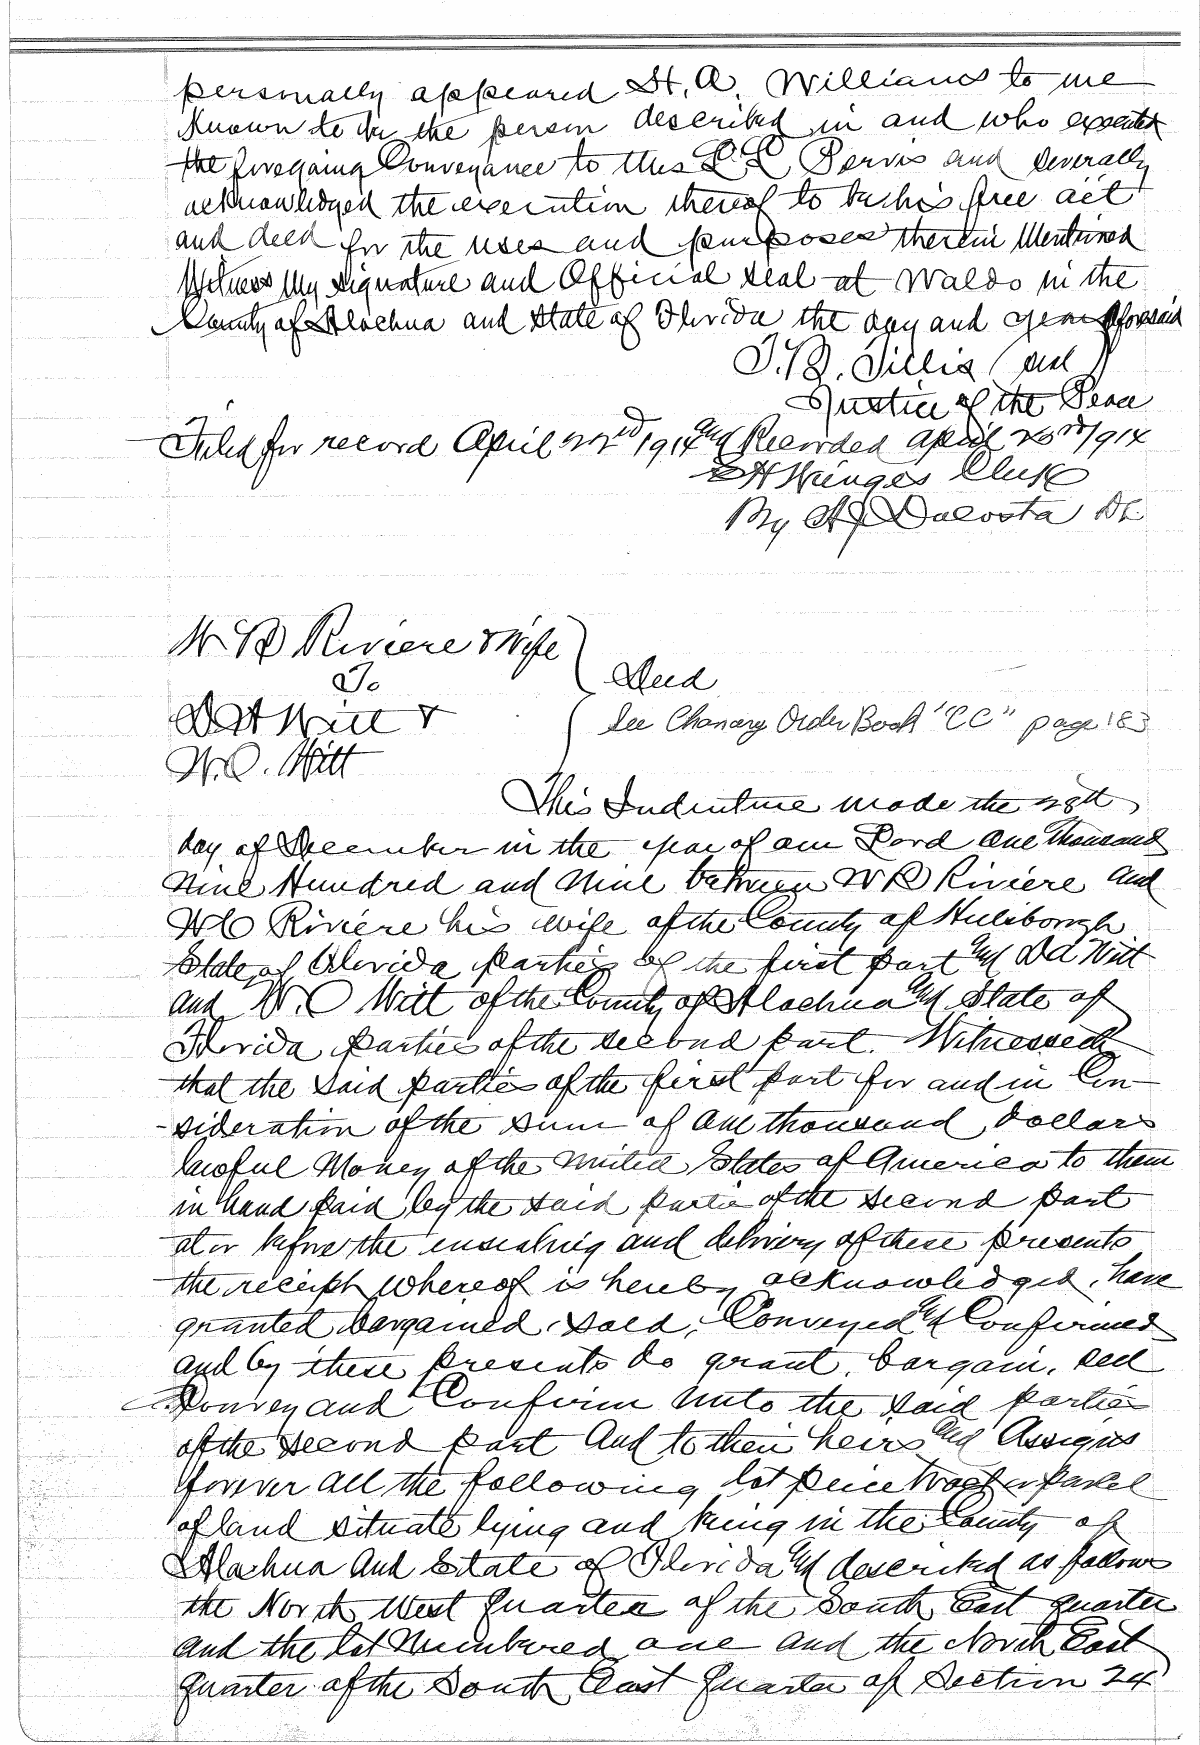 personally appeared H. A. Williams to me
Known to be the person described in and who executed
the foregoing Conveyance to this L L Pervis and severally
acknowledged the execution thereof to be his free act
and deed for the uses and purposes therein Mentioned
Witness My signature and Official seal at Waldo in the
County of Alachua and State of Florida the day and year aforesaid
T. B. Tillis (seal)
Justice of the Peace
Filed for record April 22nd 1914 and Recorded April 23rd 1914
S H Wienges Clerk
By A J Dacosta DC
W B Riviere & Wife
To
D A Witt &
W. O. Witt
Deed
See Chancery Order Book "CC" page 183
This Indenture made the 28th
day of December in the year of our Lord one thousand
Nine Hundred and Nine between W B Riviere and
H C Riviere his wife of the County of Hillsborough
State of Florida parties of the first part and D A Witt
and W. O Witt of the County of Alachua and State of
Florida parties of the second part. Witnesseth
that the said parties of the first part for and in Con-
-sideration of the sum of one thousand dollars
lawful Money of the United States of America to them
in hand paid by the said parties of the second part
at or before the ensealing and delivery of these presents
the receipt whereof is hereby acknowledged, have
granted bargained, sold, Conveyed and Confirmed
and by these presents do grant, bargain, sell
Convey and Confirm unto the said parties
of the second part And to their heirs and Assigns
forever all the following lot piece tract or parcel
of land situate lying and being in the County of
Alachua and State of Florida and described as follows
the North West Quarter of the South East quarter
and the lot Numbered one and the North East
quarter of the South East Quarter of Section 24